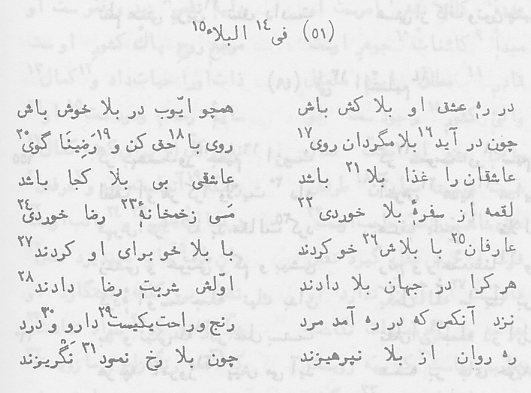 (٥١) فى١٤ البلاء١٥
در ره عشق او بلا كش باش همچو ايّوب در بلا خوش باش
چون در آيد١٦ بلا مگردان روى١٧ روى با١٨ حق كن و١٩ رَضِينَا گوى٢٠
عاشقان را غذا بلا٢١ باشد عاشقى بى بلا كجا باشد
لقمه از سفرۀ بلا خوردى٢٢ مَى زخمخانۀ٢٣ رضا خوردى٢٤
عارفان٢٥ با بلاش٢٦ خو كردند با بلا خو براى او كردند٢٧
هر كرا در جهان بلا دادند اوّلش شربت رضا دادند٢٨
نزد آنكس كه در ره آمد مرد رنج و راحت يكيست٢٩ دارو و٣٠ درد
ره روان از بلا نپرهيزند چون بلا رخ نمود٣١ نَگْريزند